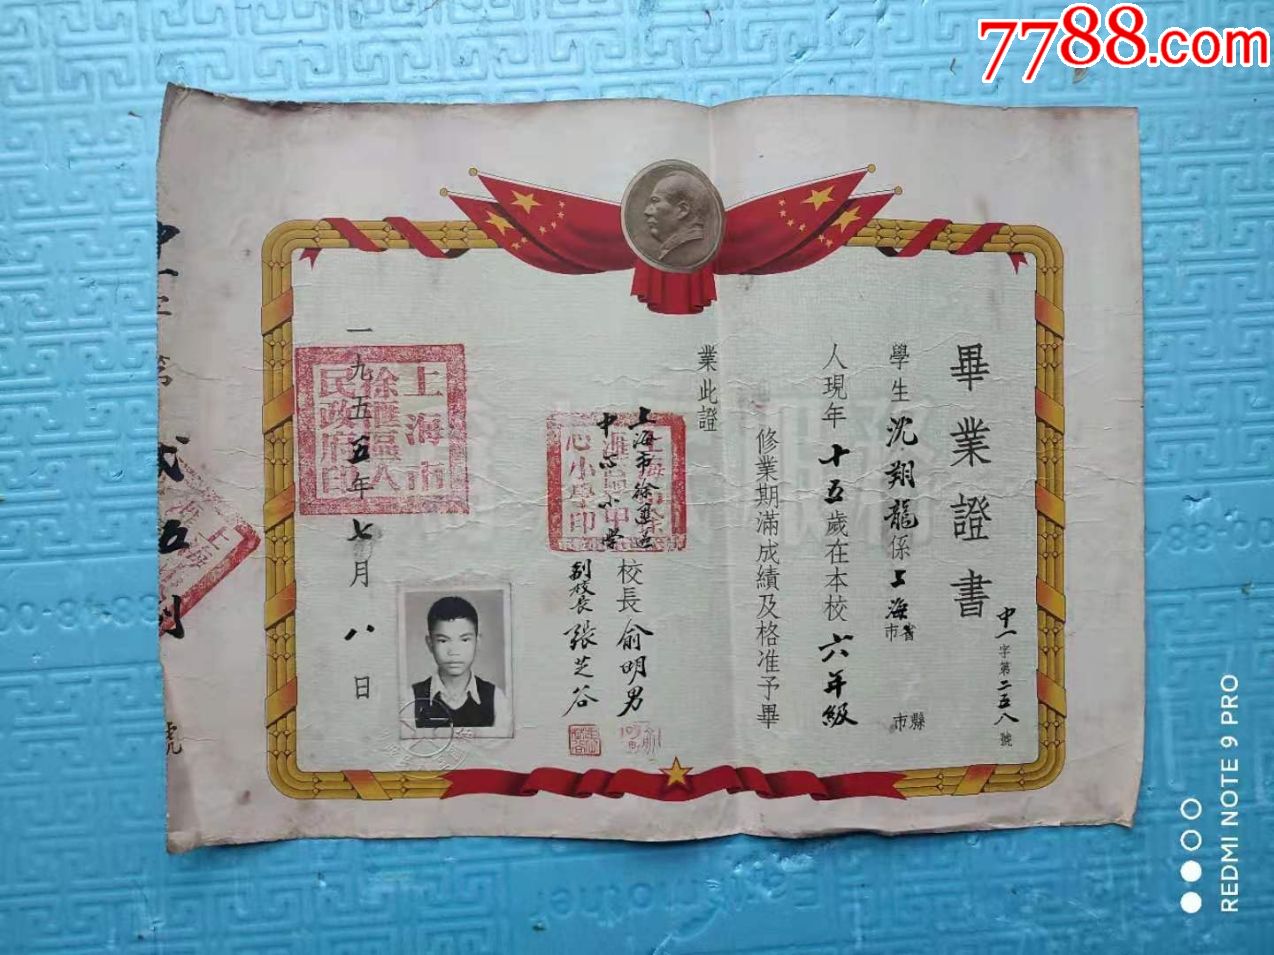 7788.com
畢業證書
中一字第二五八號
學生沈翔龍係上海省市縣市
人現年十五歲在本校六年級
修業期滿成績及格准予畢
業此證
上海市徐匯區
中心小學
校長俞明男
副校長張芝谷
一九五五年七月八日
上海市
徐匯區人
民政府印
心小學印
號
REDMI NOTE 9 PRO